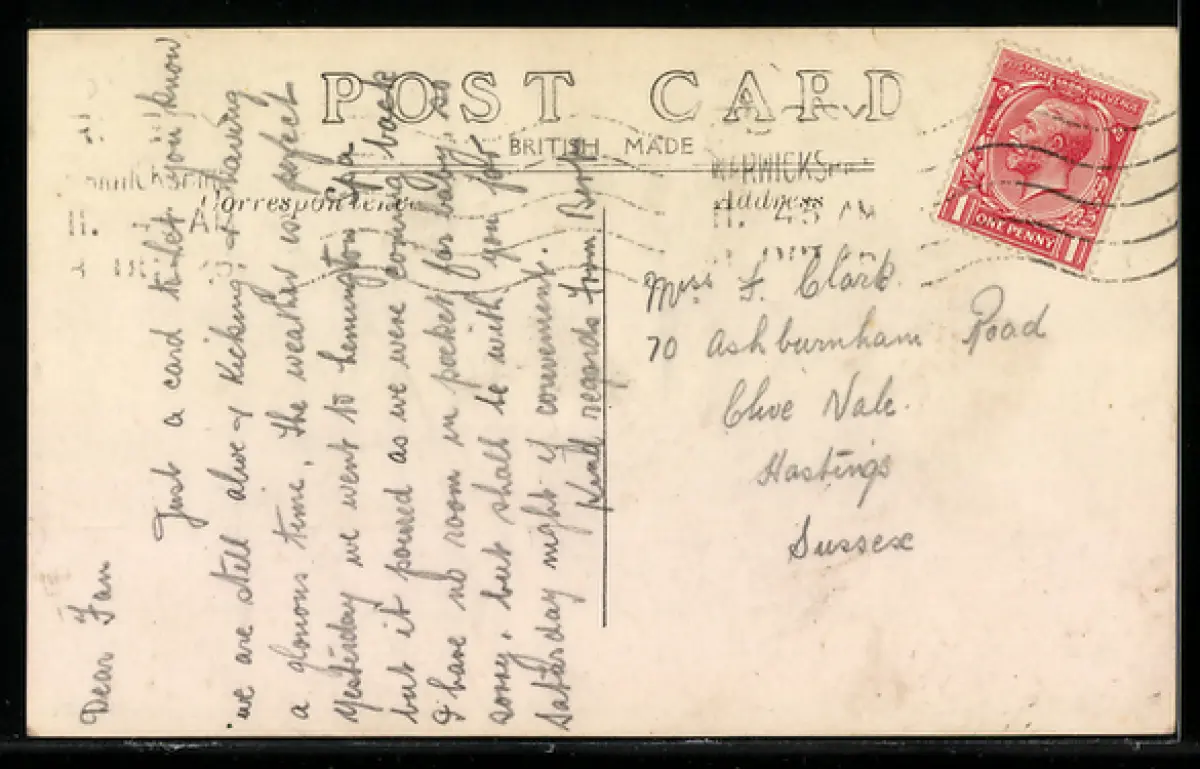 POST CARD
BRITISH MADE
Correspondence
Address
WARWICKS
11. 45 AM
POSTAGE & REVENUE
1 ONE PENNY 1
Dear Fan
Just a card to let you know
we are still alive & kicking & having
a glorious time. The weather is perfect
yesterday we went to Lemington Spa
but it poured as we were coming back
I have no room in pocket for baby, so
sorry, but shall be with you for
Saturday night if convenient.
Kind regards from
Miss F. Clark.
70 Ashburnham Road
Clive Vale.
Hastings
Sussex